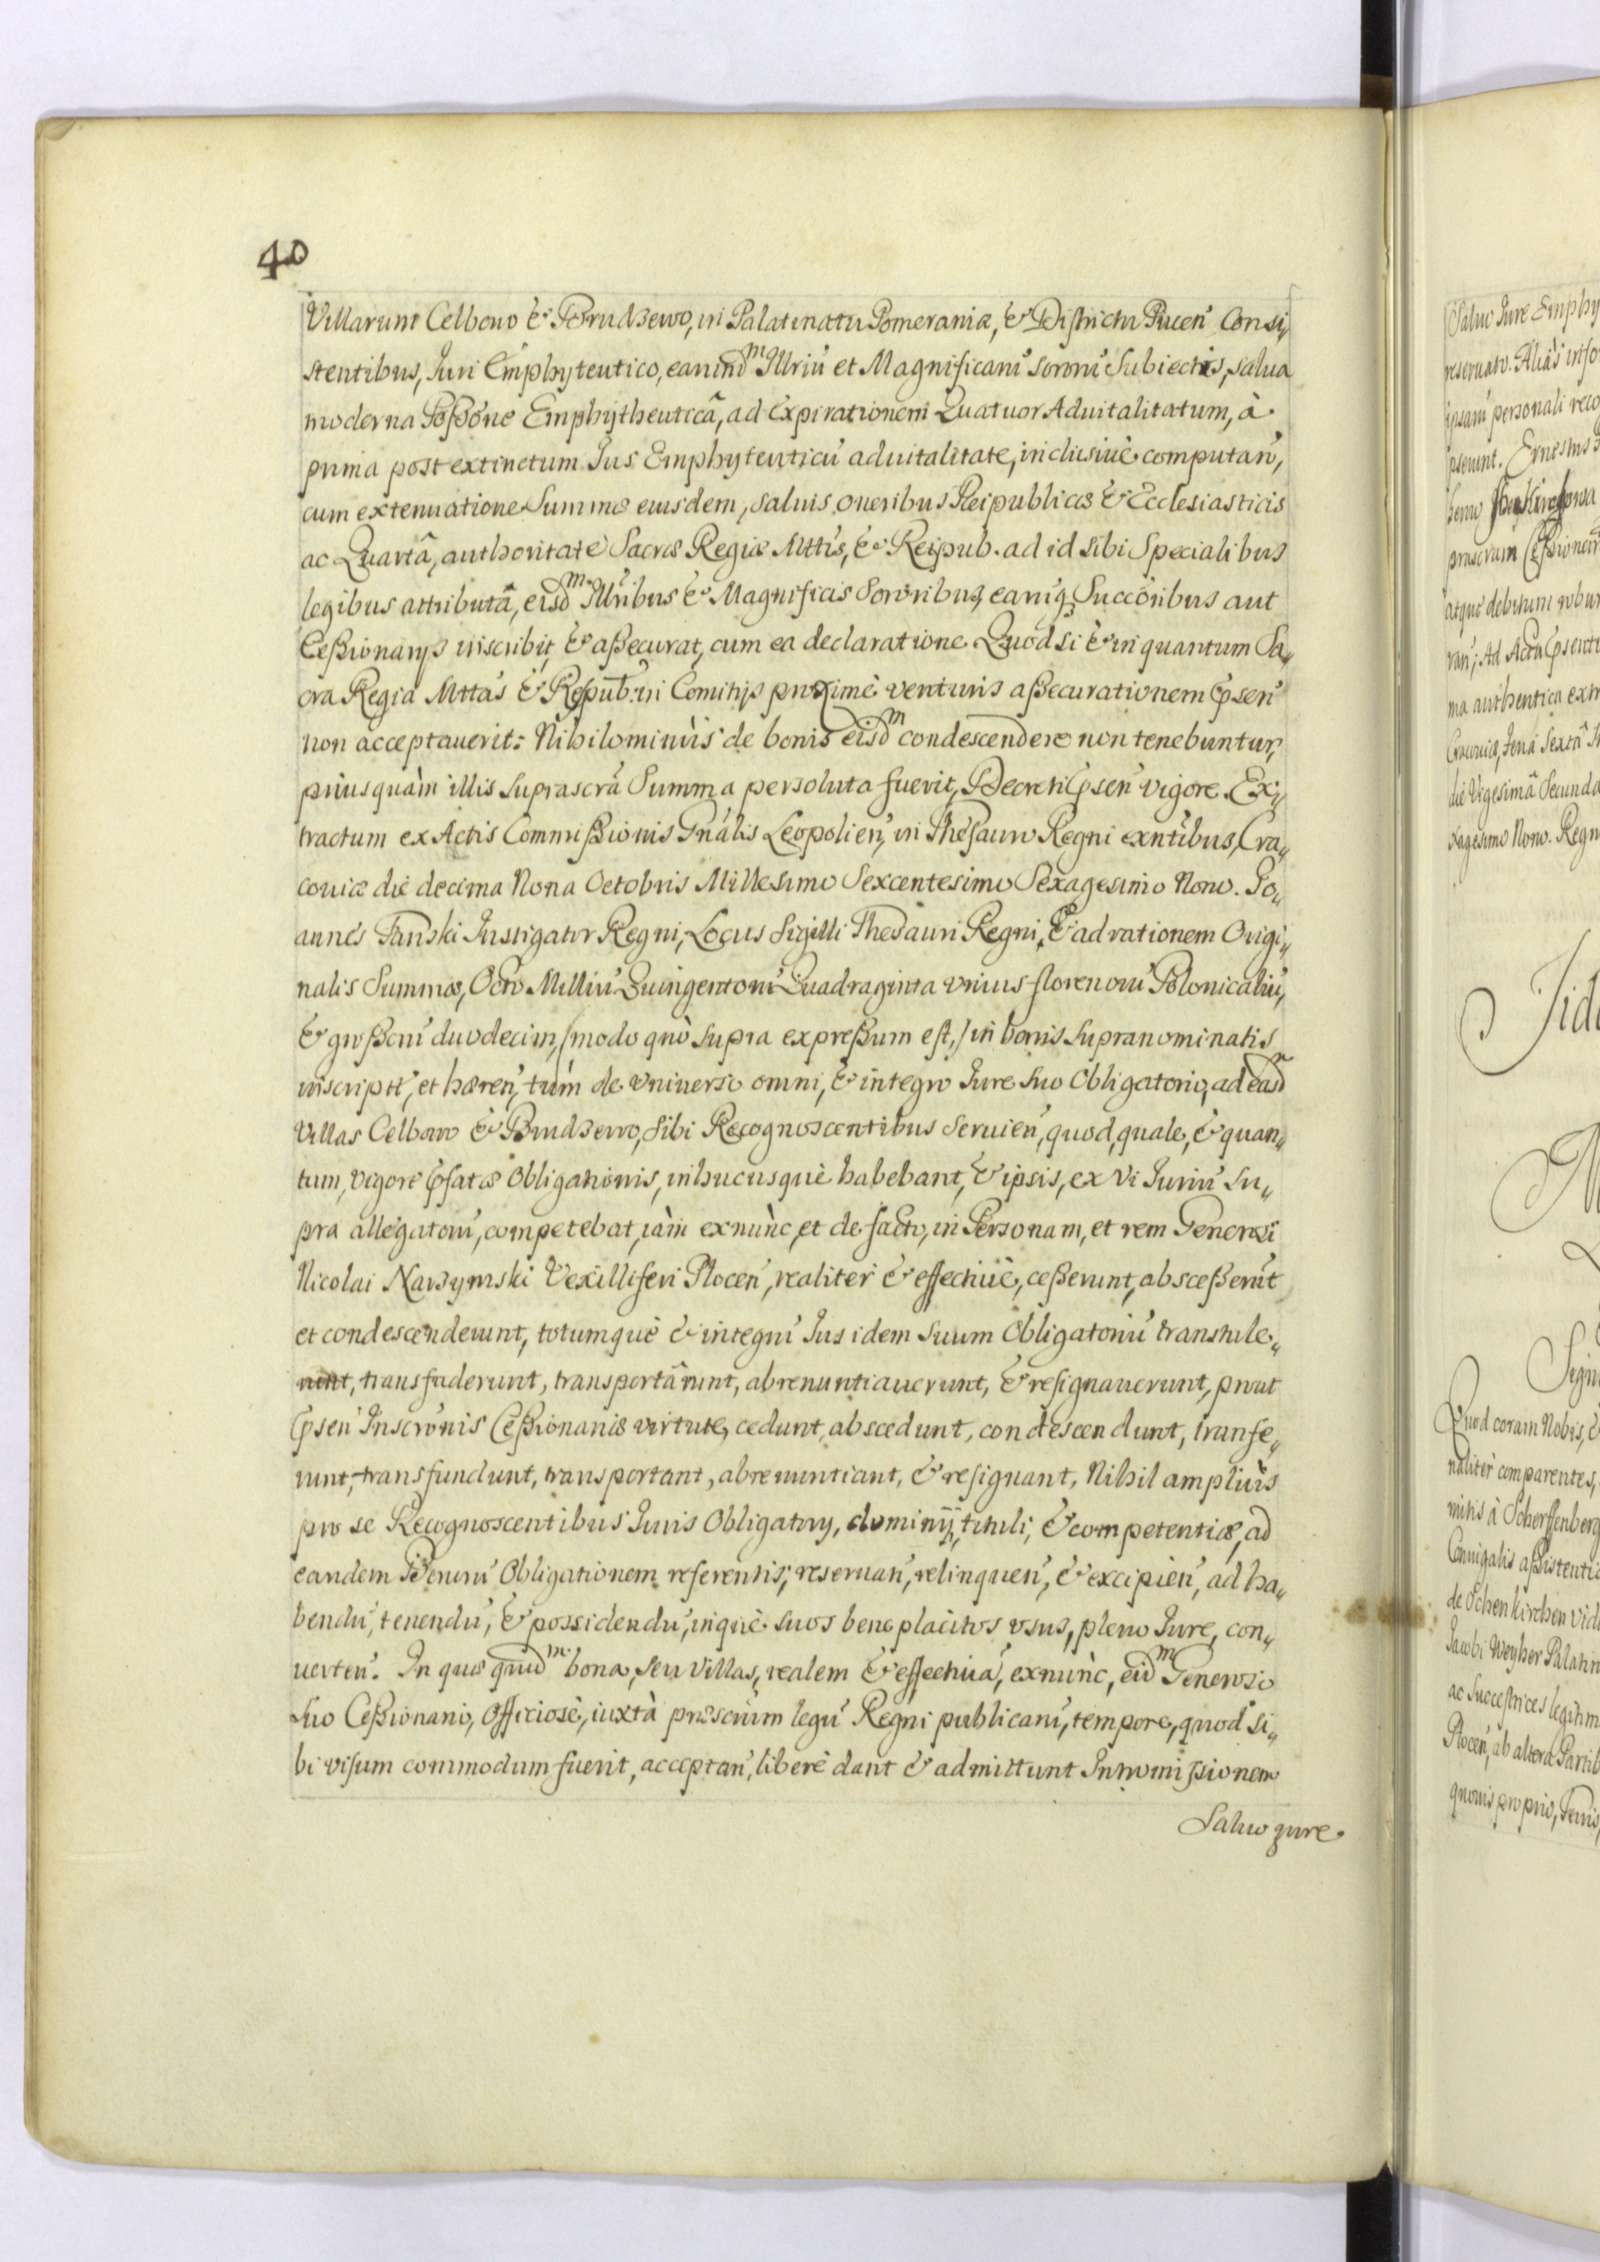 40
Villarum Celbowo & Brudzewo, in Palatinatu Pomeraniæ, & Districtu Pucen̄ Consi„
stentibus, Juri Emphyteutico, earund̄m Illriū et Magnificarū Sororū Subiectis, salua
moderna Possōne Emphytheuticâ, ad expirationem Quatuor Aduitalitatum, à
prima post extinctum Jus Emphyteuticū aduitalitate, inclusiuè computan̄,
cum extenuatione Summæ eiusdem, saluis oneribus Reipublicæ & Ecclesiasticis
ac Quartâ, authoritate Sacræ Regiæ Mttis, & Reipub. ad id sibi Specialibus
legibus attributâ, eisd̄m Illribus & Magnificis Sororibus, earuq; Succōribus aut
Cessionarijs inscribit, & assecurat, cum ea declaratione. Quod si & in quantum Sa„
cra Regia Mttas & Respub. in Comitijs proximè venturis assecurationem p̄sen̄
non acceptauerit: Nihilominùs de bonis eisd̄m condescendere non tenebuntur,
priusquàm illis suprascrā Summa persoluta fuerit, Decreti p̄sen̄ vigore. Ex„
tractum ex Actis Commissionis Gnālis Leopolien̄, in Thesauro Regni exn̄tibus, Cra„
couiæ die decima Nona Octobris Millesimo Sexcentesimo Sexagesimo Nono. Jo„
annes Tański Instigator Regni, Locus Sigilli Thesauri Regni, & ad rationem Origi„
nalis Summæ, Octo Milliū Quingentorū Quadraginta vnius florenorū Polonicaliū,
& grossorū duodecim, /modo quò supra expressum est,/ in bonis supranominatis
inscript̄, et hæren̄, tùm de vniverso omni, & integro Jure suo Obligatorio, ad easd̄m
Villas Celbowo & Brudzewo, sibi Recognoscentibus seruien̄, quod, quale, & quan„
tum, vigore p̄fatæ Obligationis, inhucusquè habebant, & ipsis, ex vi Juriū su„
pra allegatorū, competebat, iàm exnùnc, et de facto, in Personam, et rem Generosi
Nicolai Nawymski Vexilliferi Plocen̄, realiter & effectiuè, cesserunt, abscesserūt
et condescenderunt, totumquè & integrū Jus idem suum Obligatoriū transtule„
runt, transfuderunt, transportârunt, abrenuntiauerunt, & resignauerunt, prout
p̄sen̄ Inscrōnis Cessionariæ virtute, cedunt, abscedunt, condescendunt, transfe„
runt, transfundunt, transportant, abrenuntiant, & resignant, Nihil ampliùs
pro se Recognoscentibus Juris Obligatorij, dominij, tituli, & competentiæ, ad
eandem Bonorū Obligationem referentis, reseruan̄, relinquen̄, & excipien̄, ad ha„
bendū, tenendū, & possidendū, inquè suos beneplacitos vsus, pleno Jure, con„
uerten̄. In quæ quid̄m bona, seu Villas, realem & effectiuā, exnùnc, eid̄m Generoso
suo Cessionario, Officiosè, iuxtà præscrūm legū Regni publicarū, tempore, quod si„
bi visum commodum fuerit, acceptan̄, liberè dant & admittunt Intromissionem
Saluo jure